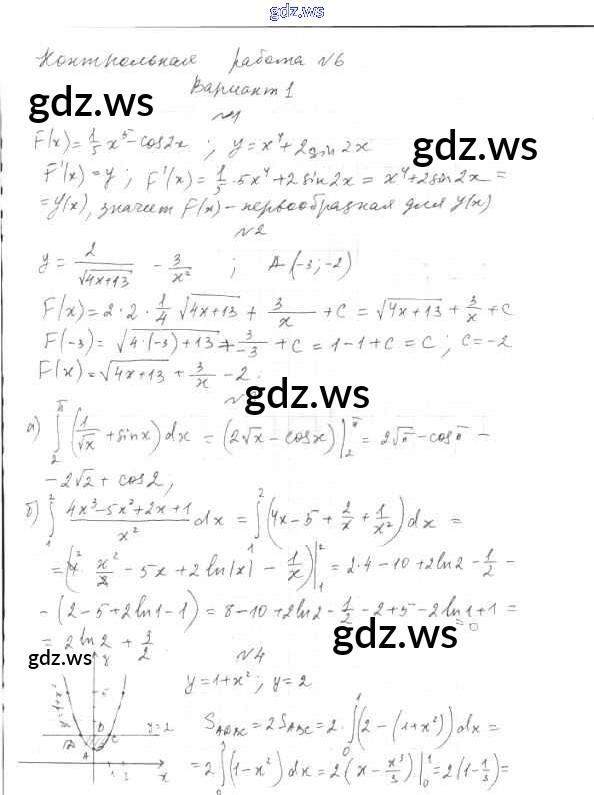 gdz.ws
Контрольная работа №6
Вариант 1
gdz.ws
№1
gdz.ws
F(x) = 1/5 x^5 - cos2x ; y = x^4 + 2 sin 2x
F'(x) = y ; F'(x) = 1/5 · 5x^4 + 2 sin 2x = x^4 + 2 sin 2x =
= y(x), значит F(x) - первообразная для y(x)
№2
y = 2/√(4x+13) - 3/x² ; A(-3; -2)
F(x) = 2 · 2 · 1/4 √(4x+13) + 3/x + C = √(4x+13) + 3/x + C
F(-3) = √(4·(-3)+13) + 3/-3 + C = 1-1+C = C ; C = -2
F(x) = √(4x+13) + 3/x - 2.
gdz.ws
а) ∫₂^π (1/√x + sinx) dx = (2√x - cosx)|₂^π = 2√π - cosπ -
- 2√2 + cos2;
б) ∫₁² (4x³-5x²+2x+1)/x² dx = ∫₁² (4x - 5 + 2/x + 1/x²) dx =
= (4² x²/2 - 5x + 2ln|x| - 1/x)|₁² = 2·4 - 10 + 2ln2 - 1/2 -
- (2 - 5 + 2ln1 - 1) = 8 - 10 + 2ln2 - 1/2 - 2 + 5 - 2ln1 + 1 =
=0
gdz.ws
= 2ln2 + 3/2.
gdz.ws
№4
y = 1+x² ; y = 2
S_ADBC = 2S_ABC = 2 · ∫₀¹ (2 - (1+x²)) dx =
= 2 ∫₀¹ (1-x²) dx = 2 (x - x³/3)|₀¹ = 2(1 - 1/3) =
y
y=1+x²
5
D
B
C
y=2
A
1
2
x